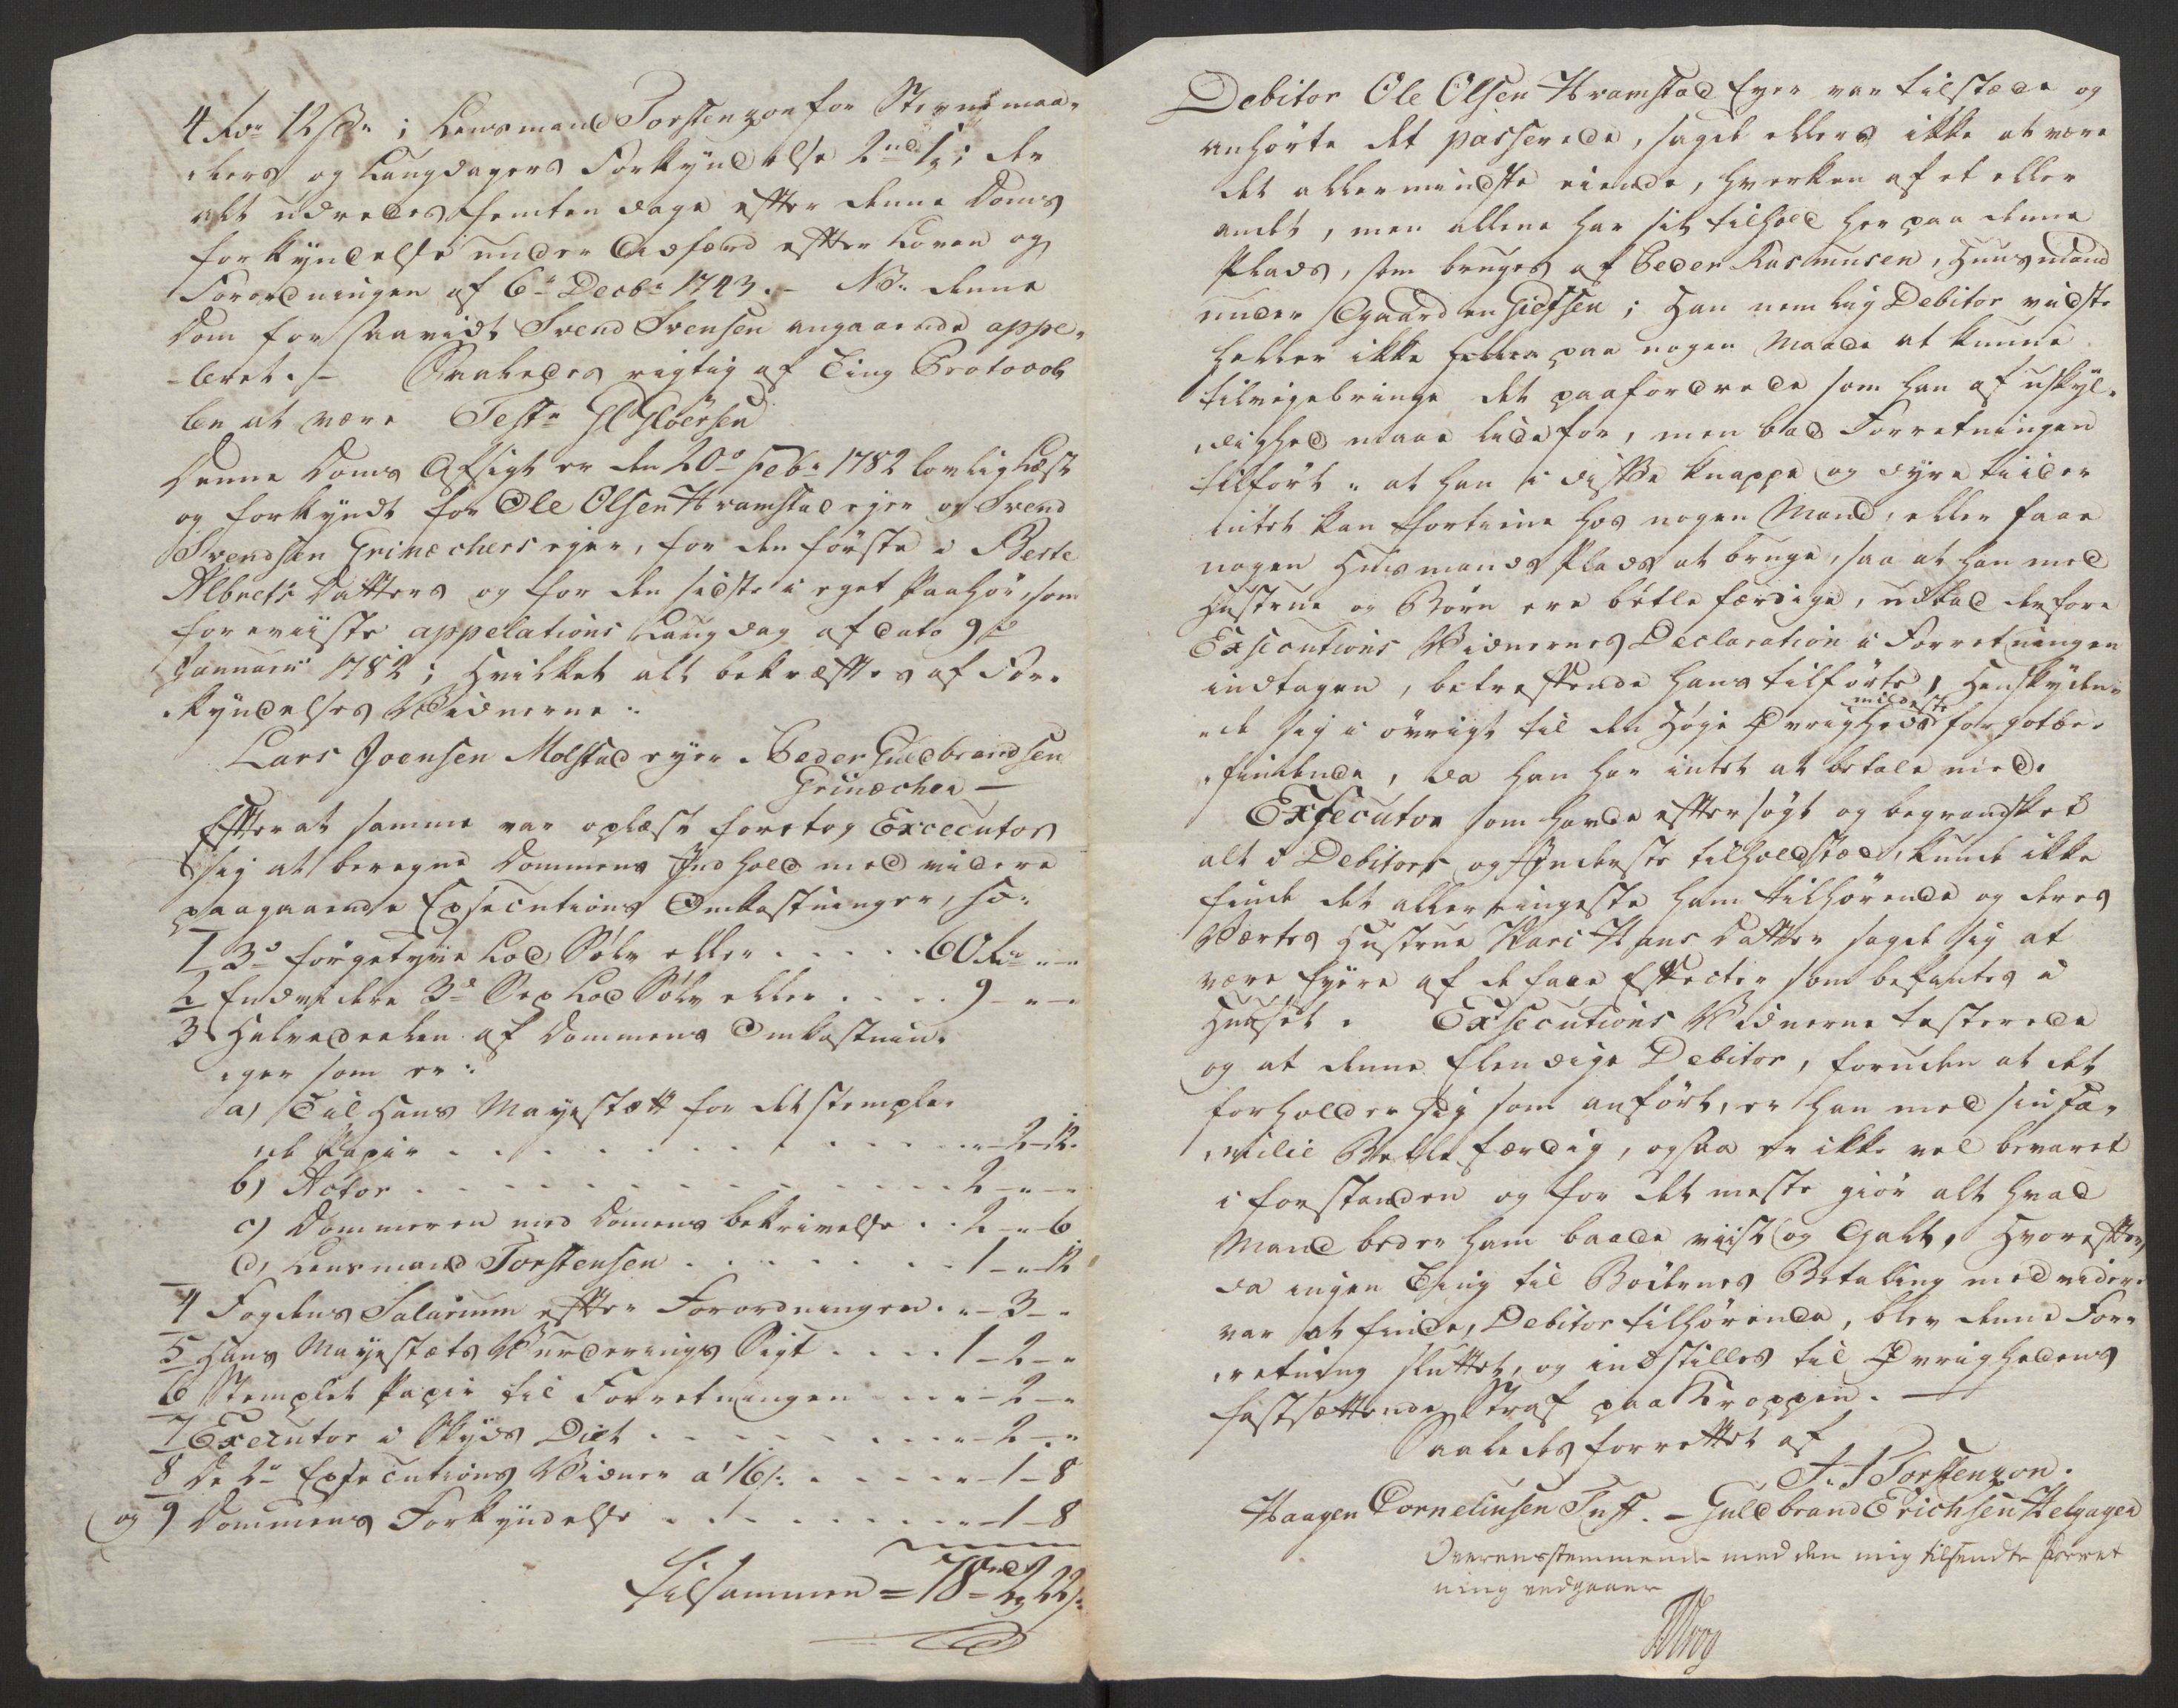 4 rdr 12 s:; Lensmand Torstenzon for Stevnemaa-
-lers og Laugdagers Forkyndelse 2 rd 1 ; der
alt udredes femten dage efter denne Doms
forkyndelse under Adfærd efter Loven og
Forordningen af 6te Decbr 1743. – NB. denne
Dom for saavidt Svend Svensen angaaende appe-
-leret. – Saaledes rigtig af Ting Protocol-
len at være Test: Gløersen
Denne Doms Afsigt er den 20de Febr 1782 lovlig Læst
og forkyndt for Ole Olsen Hramstad eyer og Svend
Svendsen Grinæchers eyer, for den første i Berte
Albrets Datters og for den sidste i eget Paahør, som
foreviiste appelations Laugdag af dato 9de
Januarii 1782; Hvilket alt bekræftes af For-
-kyndelses Vidnerne:
Lars Joensen Molstad eyer. Peder Guldbrandsen
Grinæcher –
Efter at samme var oplæst foretog Excecutor
sig at beregne Dommens Indhold med videre
paagaaende Exsecutions Omkostninger, so:
1 3de førgetyve Lod Sølv eller . . . . . 60 rdr „ – „
2 Endvidere 3de Sex Lod Sølv eller . . . . 9 – „ – „
3 Halvedeelen af Dommens Omkostnin-
-ger som er:
a) Til Hans Mayestætt for det stemple-
-de Papir . . . . . . . . . . . „ – 2 – 12.
b) Actor . . . . . . . . . . . . 2 – „ – „
c) Dommeren med Domens bekrivelse . . 2 – „ – 6
d, Lensmand Torstensen . . . . . . . 1 – „ – 12
4 Fogdens Salarium efter Forordningen . „ – 3 – „
5 Hans Mayestæts Vurderings Sigt . . . . 1 – 2 – „
6 Stemplet Papir til Forretningen . . . „ – 2 – „
7 Executor i Skyds Diet . . . . . . . . „ – 2 – „
8 De 2de Exsecutions Vidner a' 16 s: . . . . . „ – 1 – 8
og 9 Dommens Forkyndelse . . . . . . . . „ – 1 – 8
Tilsammen = 78 rd 2 22 s:
Debitor Ole Olsen Hramstad Eyer var tilstæde og
anhørte det passerede, sagde ellers ikke at være
det allermindste eiende, hverken af et eller
andet, men allene har sit tilhold her paa denne
Plads, som bruges af Peder Rasmusen, Huusmand
under Gaarden Giefsen; Han nemlig Debitor vidste
heller ikke heller paa nogen Maade at kunne
tilvejebringe det paafordrede som han af uskyl-
-dighed maae lide for, men bad Forretningen
tilført „ at han i disse knappe og dyre tiider
intet kan fortiene hos nogen Mand, eller faae
nogen Huusmands Plads at bruge, saa at han med
Hustrue og Børn ere betle færdige, udbad derfore
Exsecutions Vidnernes Declaration i Forretningen
indtagen, betreffende hans tilførte, Henskyden-
-de sig i øvrigt til den Høye Øvrigheds mildeste forgotbe-
-findende, da han har intet at betale med.
Exsecutor som havde eftersøgt og begrandsket
alt i Debitors og Inderste tilholdstæd, kunde ikke
finde det allerringeste ham tilhørende og deres
Værtes Hustrue Mari Hans Datter sagde sig at
være Eyere af de faae Effecter som befantes i
Huuset. Exsecutions Vidnerne testerede
og at denne Elendige Debitor, foruden at det
forholder sig som anført, er han med sin Fa-
-milie Betle færdig, ogsaa er ikke vel bevaret
i forstanden og for det meste giør alt hvad
Mand beder ham baade viist og Galt, Hvorefter,
da ingen Ting til Bødernes Betaling med videre
var at finde, Debitor tilhørende, blev denne For-
-retning sluttet, og indstilles til Øvrighedens
fastsættende Straf paa Kroppen. –
Saaledes forrettet af
J. J. Torstenzon.
Haagen Cornelinsen Tuft. – Guldbrand Erichsen Helgager
Overensstemmende med den mig tilsendte Forret
ning vedgaaer